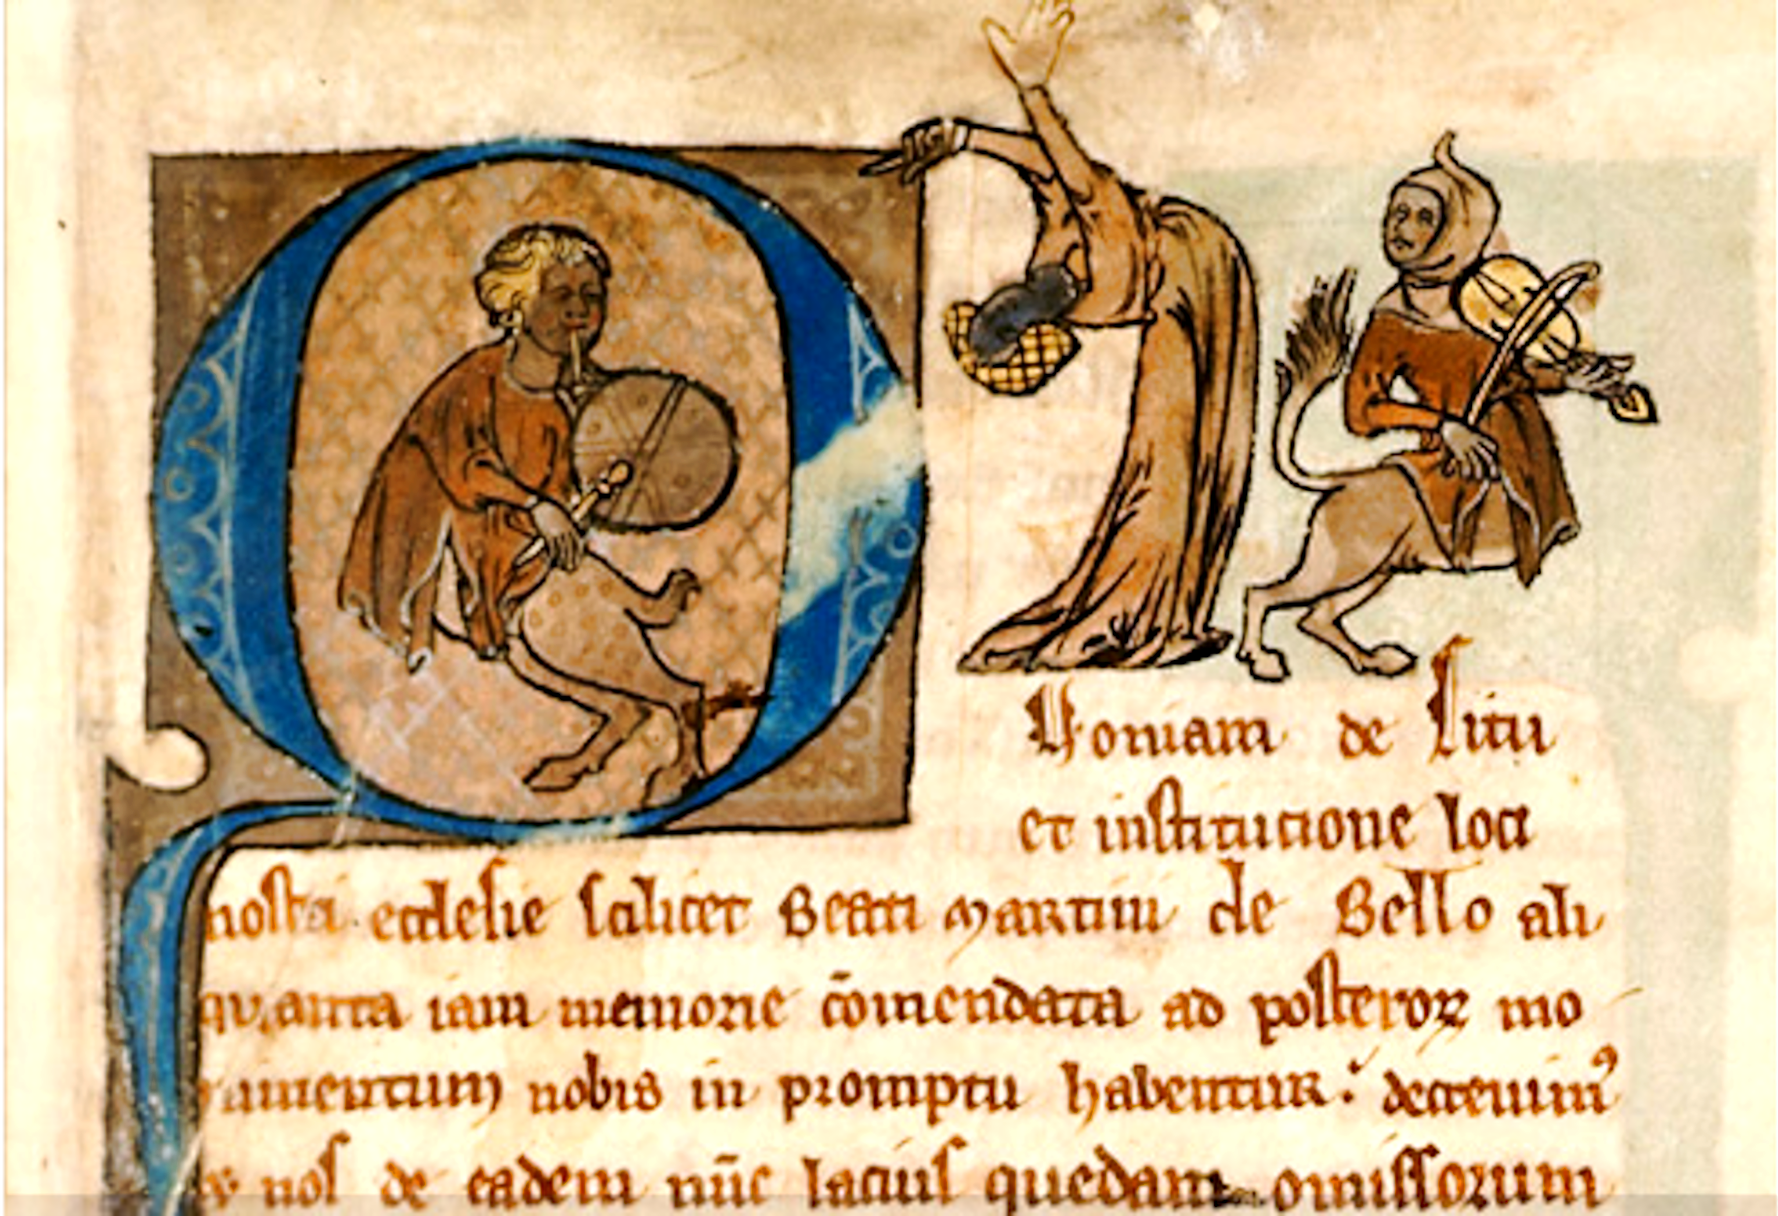 QVoniam de situ
et institucione loci
nostri ecclesie scilicet Beati Martini de Bello ali
quanta iam memorie cōmendata ad posteroꝝ mo
nimentum nobis in promptu habentur: decreuimꝰ
nos de eadem nūc lacius quedam omissorum